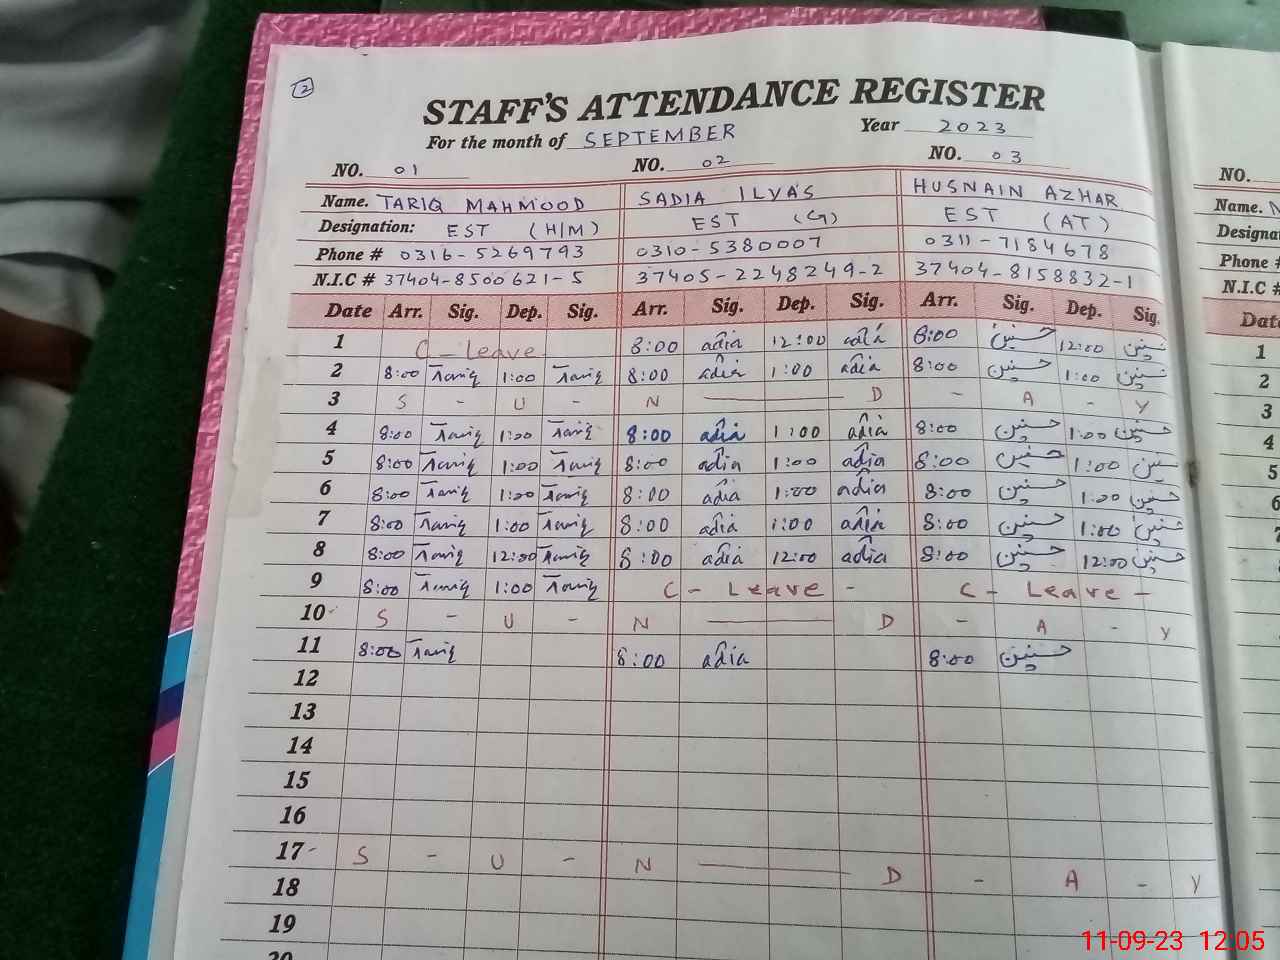 2
STAFF'S ATTENDANCE REGISTER
For the month of SEPTEMBER Year 2023
NO. 01 NO. 02 NO. 03 NO.
Name. TARIQ MAHMOOD SADIA ILYAS HUSNAIN AZHAR Name.
Designation: EST (H/M) EST (G) EST (AT)
Phone # 0316-5269793 0310-5380007 0311-7184678 Phone #
N.I.C # 37404-8500621-5 37405-2248249-2 37404-8158832-1 N.I.C #
Date Arr. Sig. Dep. Sig. Arr. Sig. Dep. Sig. Arr. Sig. Dep. Sig.
1 C-Leave 8:00 adia 12:00 adia 8:00 حسنین 12:00 حسنین 1
2 8:00 Tariq 1:00 Tariq 8:00 adia 1:00 adia 8:00 حسنین 1:00 حسنین 2
3 S - U - N - D - A - Y 3
4 8:00 Tariq 1:00 Tariq 8:00 adia 1:00 adia 8:00 حسنین 1:00 حسنین 4
5 8:00 Tariq 1:00 Tariq 8:00 adia 1:00 adia 8:00 حسنین 1:00 حسنین 5
6 8:00 Tariq 1:00 Tariq 8:00 adia 1:00 adia 8:00 حسنین 1:00 حسنین 6
7 8:00 Tariq 1:00 Tariq 8:00 adia 1:00 adia 8:00 حسنین 1:00 حسنین
8 8:00 Tariq 12:00 Tariq 8:00 adia 12:00 adia 8:00 حسنین 12:00 حسنین
9 8:00 Tariq 1:00 Tariq C- Leave - C- Leave -
10 S - U - N - D - A - Y
11 8:00 Tariq 8:00 adia 8:00 حسنین
12
13
14
15
16
17 S - U - N - D - A - Y
18
19
20
11-09-23 12:05